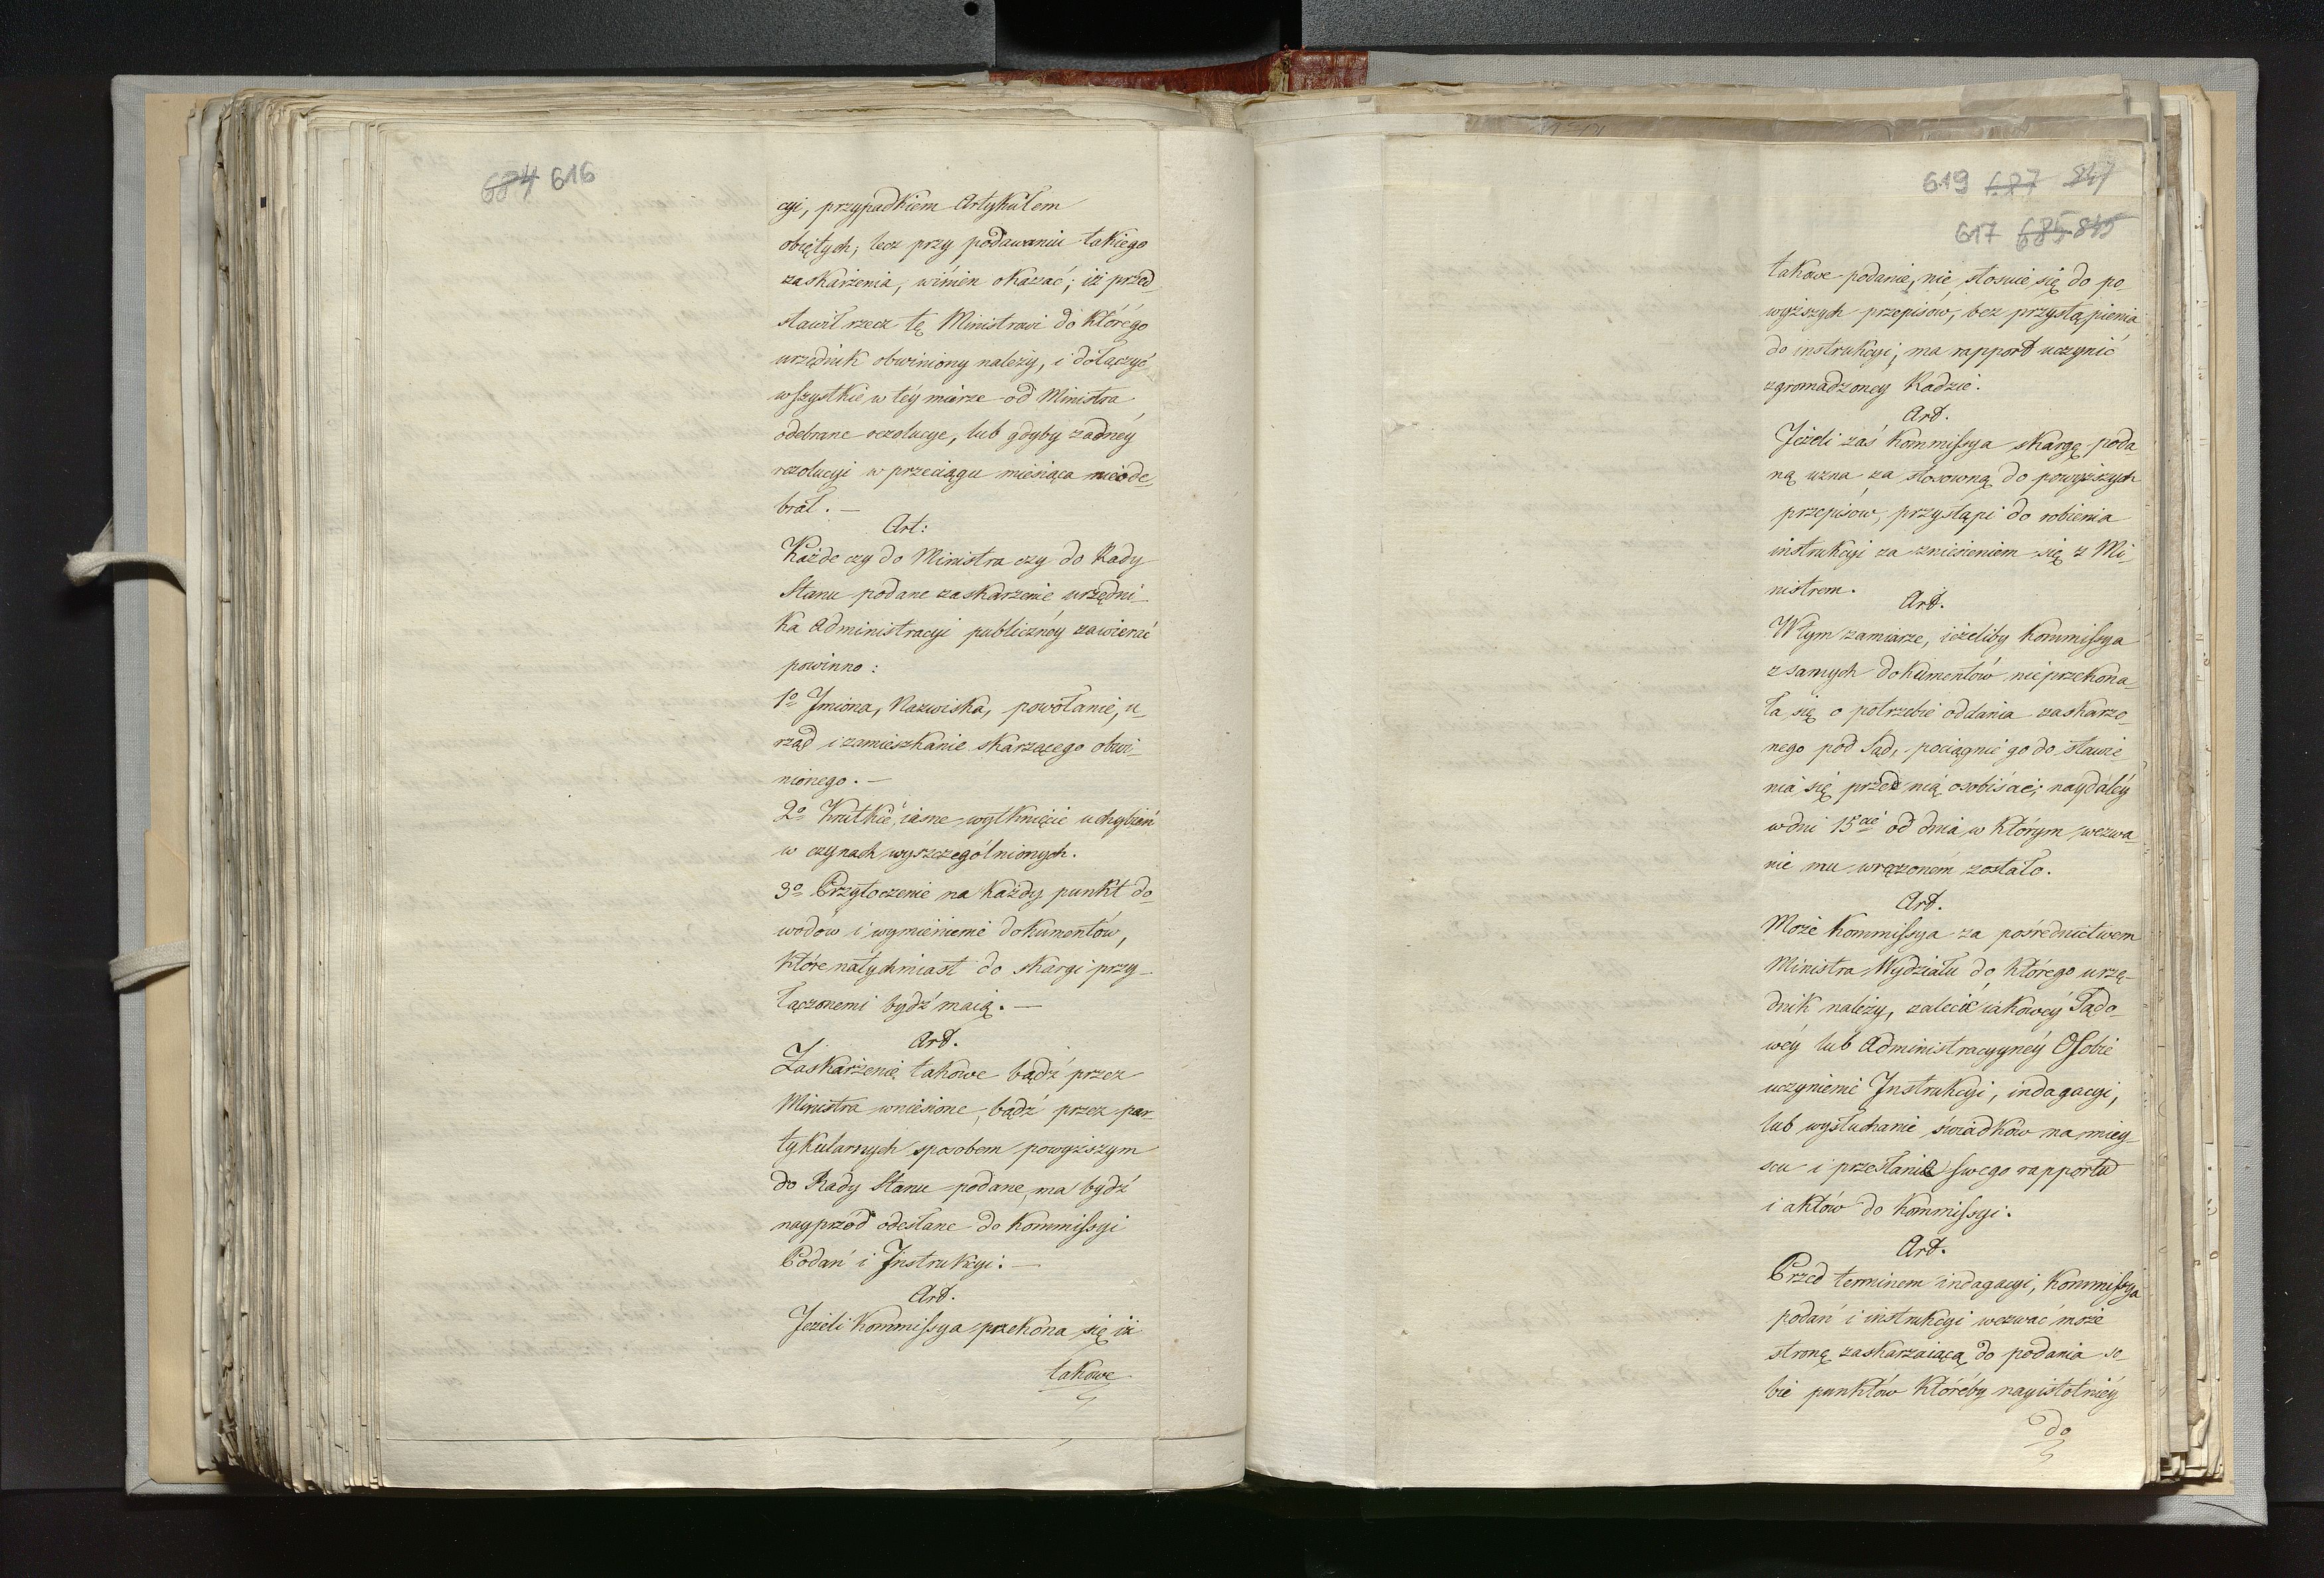 684 616
cyi, przypadkiem Artykułem
obiętych; lecz przy podawaniu takiego
zaskarżenia, winien okazać; iż przed_
stawił rzecz tę Ministrowi do którego
urzędnik obwiniony należy, i dołączyć
wszystkie w téy mierze od Ministra
odebrane rezolucye, lub gdyby żadnéy
rezolucyi w przeciągu miesiąca nieode_
brał. —
Art:
Każde czy do Ministra czy do Rady
Stanu podane zaskarżenie urzędni_
ka Administracyi publicznéy zawierać
powinno:
1o Jmiona, Nazwiska, powołanie, u_
rząd i zamieszkanie skarżącego obwi_
nionego. —
2o Krutkie, iasne wytknięcie uchybień
w czynach wyszczególnionych.
3o Przytoczenie na każdy punkt do_
wodów i wymienienie dokumentów,
które natychmiast do skargi przy_
łączonemi bydź maią. —
Art.
Zaskarżenie takowe bądź przez
Ministra wniesione, bądź przez par_
tykularnych sposobem powyższym
do Rady Stanu podane, ma bydź
nayprzód odesłane do Kommissyi
Podań i Jnstrukcyi: —
Art.
Jeżeli Kommissya przekona się iż
takowe
619 687 847
617 685 845
takowe podanie, nie stosuie się do po_
wyższych przepisów, bez przystąpienia
do instrukcyi; ma rapport uczynić
zgromadzoney Radzie.
Art.
Jeżeli zaś Kommissya skargę poda_
ną uzna za stosowną do powyższych
przepisów, przystąpi do robienia
instrukcyi za zniesieniem się z Mi_
nistrem.
Art.
W tym zamiarze, ieżeliby Kommissya
z samych dokumentów nieprzekona_
ła się o potrzebie oddania zaskarżo_
nego pod Sąd, pociągnie go do stawie_
nia się przed nią osobiście; naydaléy
w dni 15cie od dnia w którym wezwa_
nie mu wręczoném zostało.
Art.
Może Kommissya za pośrednictwem
Ministra Wydziału do którego urzę_
dnik należy, zalecić iakowéy Sądo_
wéy lub Administracyynéy Osobie
uczynienie Jnstrukcyi, indagacyi,
lub wysłuchanie swiadków na miey_
scu i przesłanie swego rapportu
i aktów do Kommissyi.
Art.
Przed terminem indagacyi, Kommissya
podań i instrukcyi wezwać może
stronę zaskarzaiącą do podania so_
bie punktów któreby nayistotniéy
do